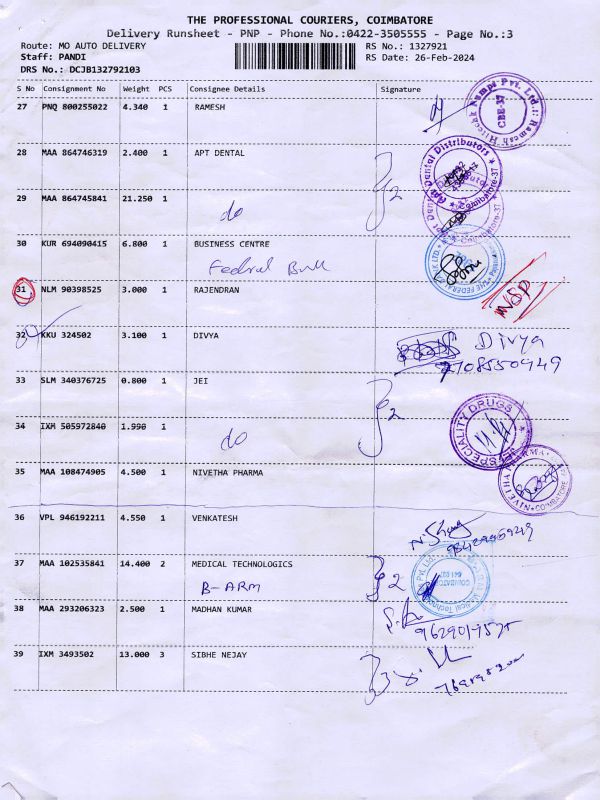 THE PROFESSIONAL COURIERS, COIMBATORE
Delivery Runsheet - PNP - Phone No.:0422-3505555 - Page No.:3
Route: MO AUTO DELIVERY RS No.: 1327921
Staff: PANDI RS Date: 26-Feb-2024
DRS No.: DCJB132792103
S No Consignment No Weight PCS Consignee Details Signature
27 PNQ 800255022 4.340 1 RAMESH
28 MAA 864746319 2.400 1 APT DENTAL
Apt Dental Distributors
2
29 MAA 864745841 21.250 1
do
Coimbatore-37
30 KUR 694090415 6.800 1 BUSINESS CENTRE
Fedral Bank
31 NLM 90398525 3.000 1 RAJENDRAN
32 KKU 324502 3.100 1 DIVYA
Divya
9708550949
33 SLM 340376725 0.800 1 JEI
2
34 IXM 505972840 1.990 1
do
SPECIALITY DRUGS
35 MAA 108474905 4.500 1 NIVETHA PHARMA
NIVETHA PHARMA
COIMBATORE
36 VPL 946192211 4.550 1 VENKATESH
37 MAA 102535841 14.400 2 MEDICAL TECHNOLOGICS
B-ARM
2
38 MAA 293206323 2.500 1 MADHAN KUMAR
39 IXM 3493502 13.000 3 SIBHE NEJAY
3